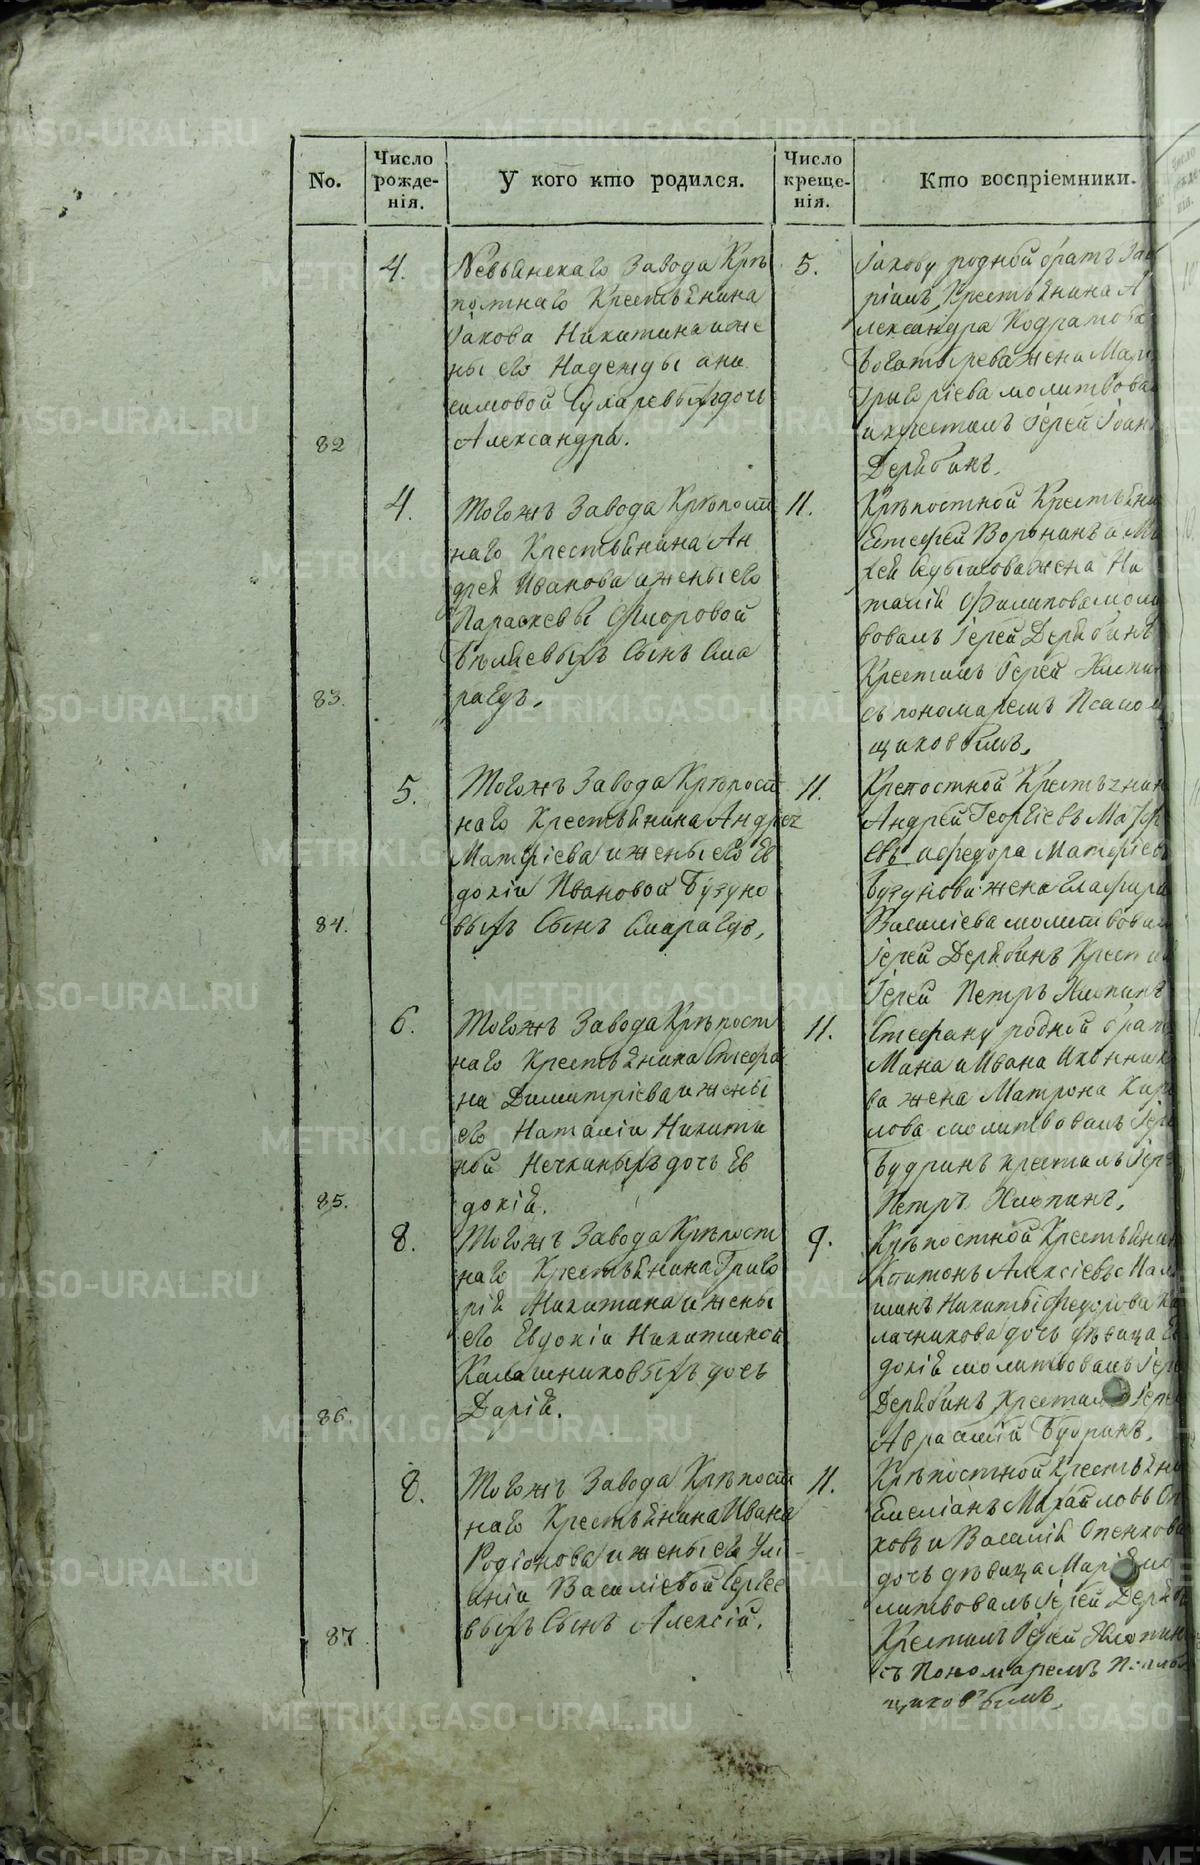 No.
Число рожде-нія.
У кого кто родился.
Число креще-нія.
Кто воспріемники.
82
4.
Невьянскаго Завода Крѣ
постнаго Крестьянина
Іакова Никитина и же
ны его Надежды Они
симовой дочь
Александра.
5.
Іакову родной братъ
Крестьянина А
лександра Кодратова
Богатырева жена
Григоріева молитвова
и крестилъ Іерей Іоан
Дерябинъ.
83.
4.
Тогожъ Завода Крѣпост
наго Крестьянина Ан
дрея Иванова и жены его
Параскевы Флоровой
Бѣляевыхъ Сынъ Сма
рагдъ.
11.
Крѣпостной Крестьяни
Естефей Воронинъ и
жена На
талія Филипова моли
вовалъ Іерей Дерябинъ
Крестилъ Іерей Хлопин
съ пономаремъ Псалом
щиковымъ.
84.
5.
Тогожъ Завода Крѣпост
наго Крестьянина Андрея
Матфіева и жены его Ев
докіи Ивановой Бузуно
выхъ Сынъ Смарагдъ.
11.
Крепостной Крестьянин
Андрей Георгіевъ
евъ и Федора Матфіев
Бузунова жена Глафира
Василіева молитвовал
Іерей Дерябинъ Крести
Іерей Петръ Хлопинъ
85.
6.
Тогожъ Завода Крѣпост
наго Крестьянина Стефа
на Димитріева и жены
его Наталіи Никити
ной Нечкиныхъ дочь Ев
докія.
11.
Стефану родной брат
Мина и Ивана Иконник
ва жена Матрона Кири
лова молитвовалъ Іере
Будринъ крестилъ Іере
Петръ Хлопинъ.
86.
8.
Тогожъ Завода Крѣпост
наго Крестьянина Григо
рія Никитина и жены
его Евдокіи Никитиной
Калашниковыхъ дочь
Дарія.
9.
Крѣпостной Крестьянин
Алексіевъ
Никиты Федорова Ка
лачникова дочь дѣвица Ев
докія молитвовалъ Іере
Дерябинъ Крестилъ Іере
Авраамій Будринъ.
87
8.
Тогожъ Завода Крѣпост
наго Крестьянина Ивана
Родіонова и жены его Улі
аніи Василіевой Сергее
выхъ Сынъ Алексій.
11.
Крѣпостной Крестьяни
Емеліанъ Михайловъ Оп
ковъ и Василія Опенкова
дочь дѣвица Марія мо
литвовалъ Іерей Деряб
Крестилъ Іерей Хлопин
съ Пономаремъ Псалом
щиковымъ.
METRIKI.GASO-URAL.RU